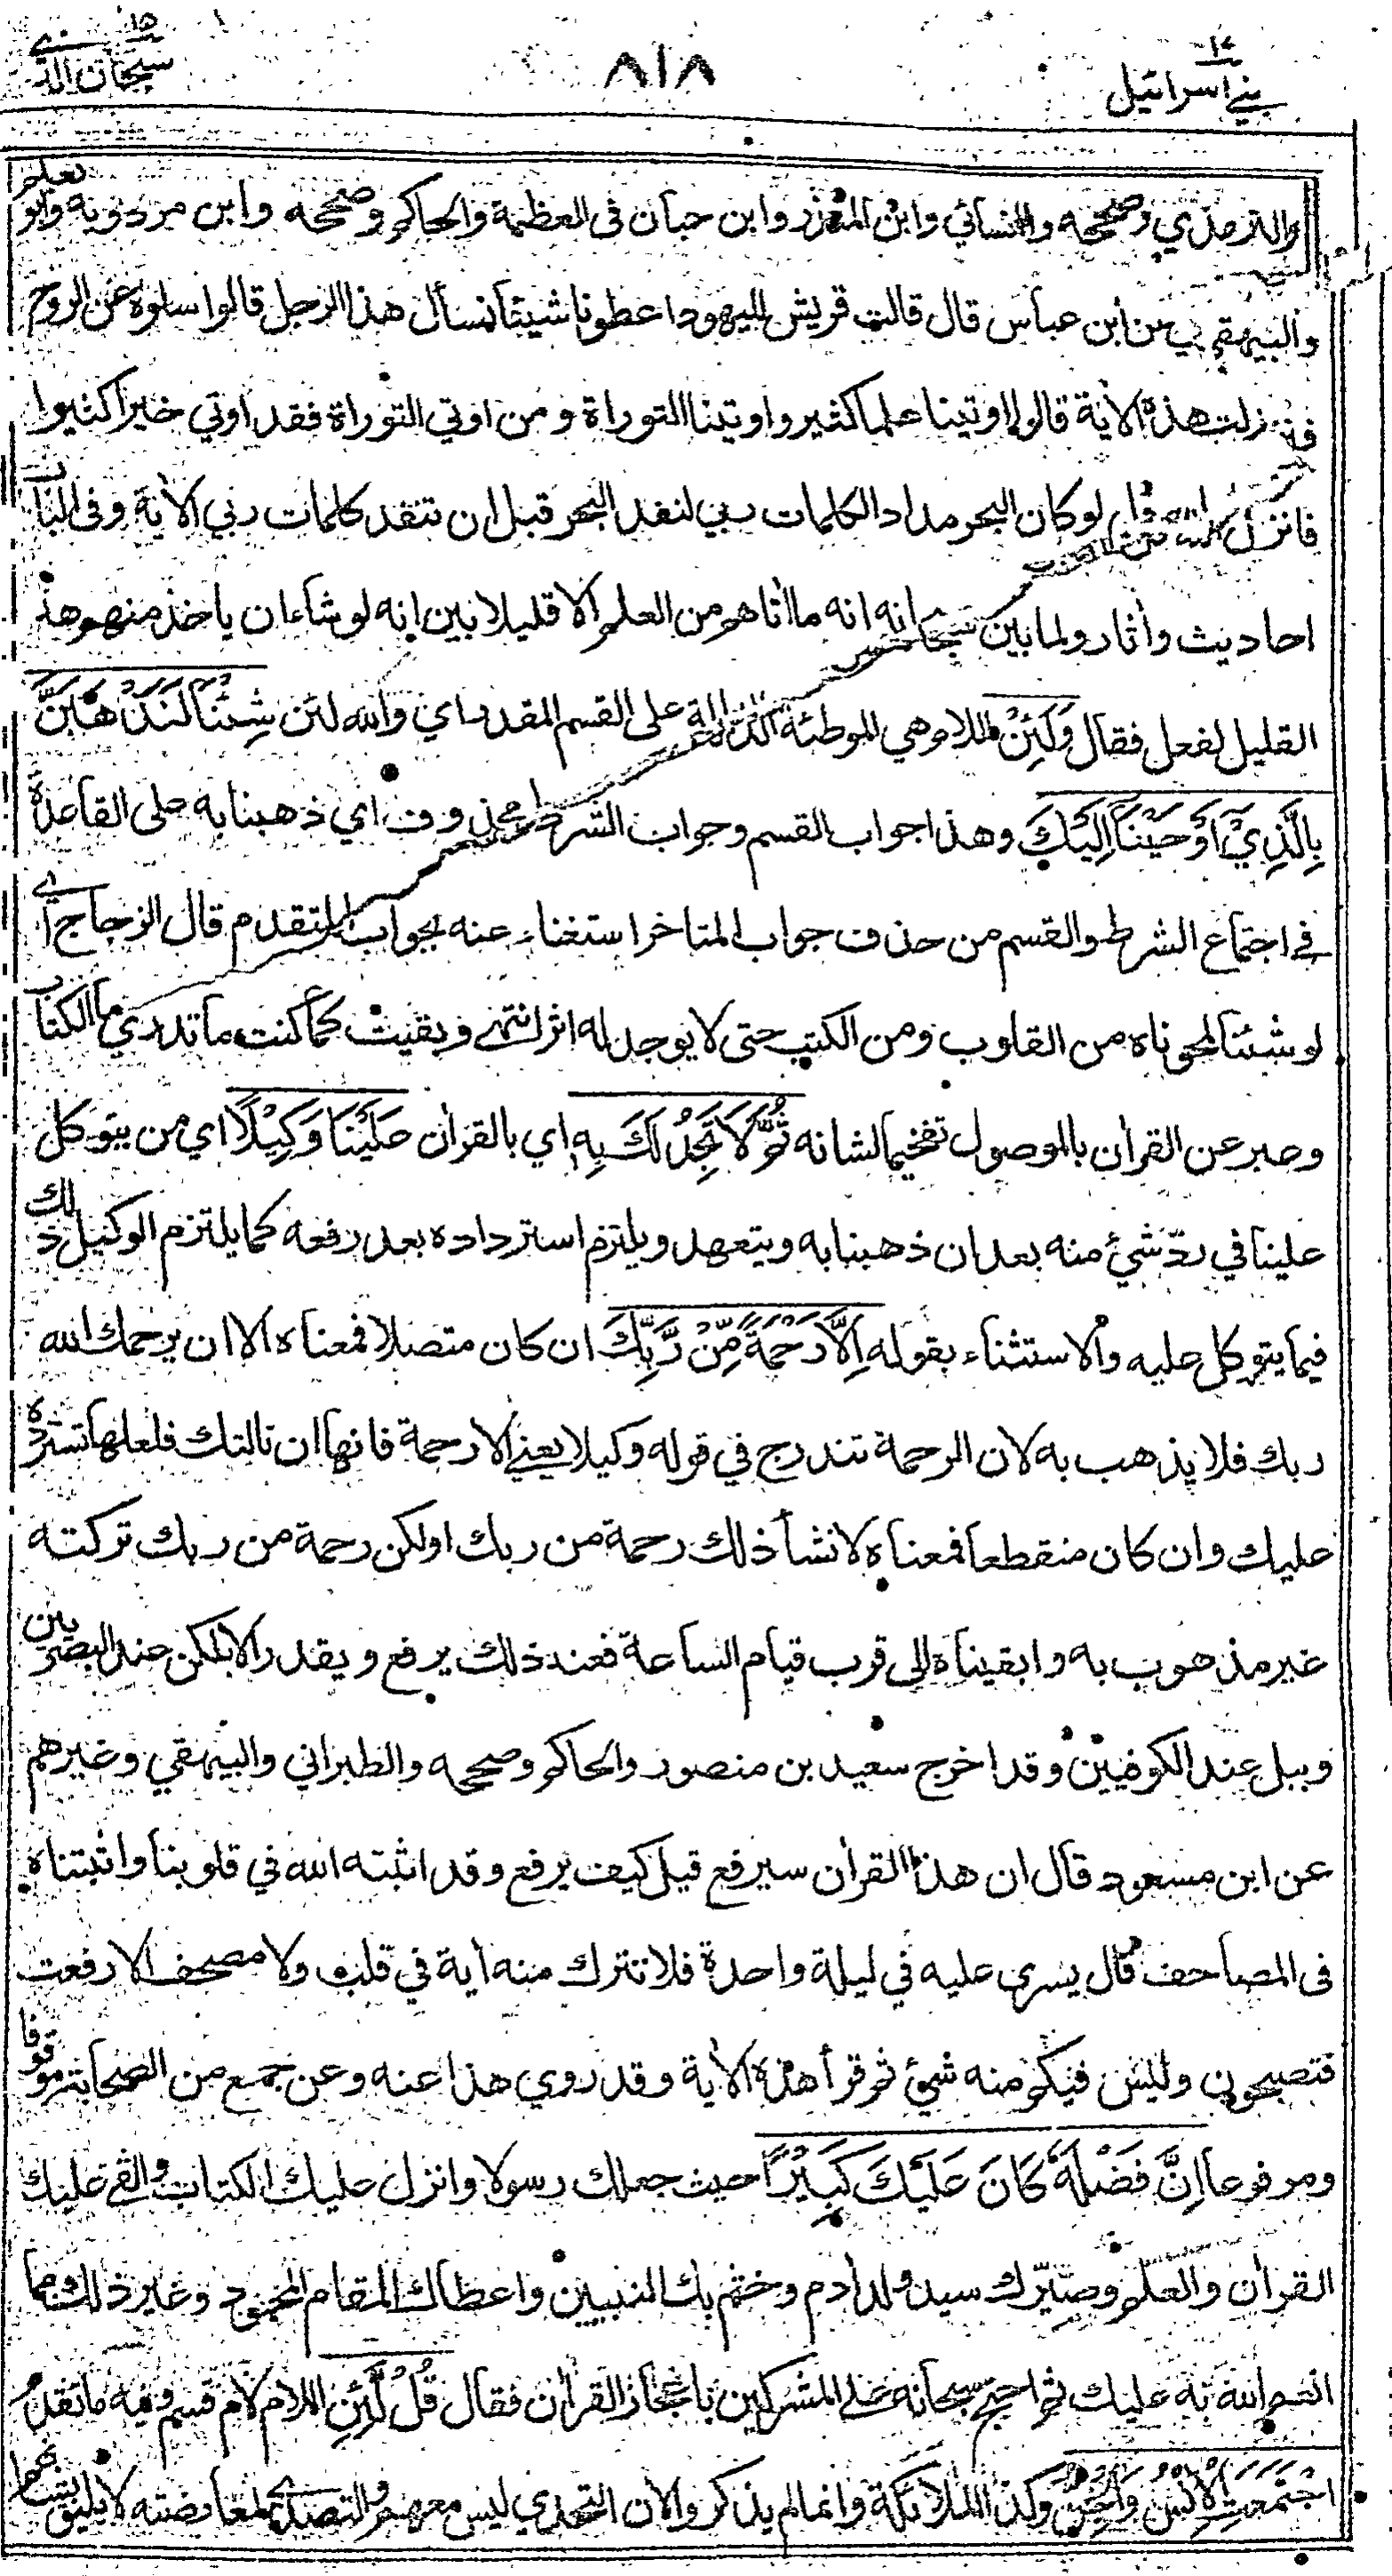 بني اسرائيل ١٧
٨١٨
سبحان الذي ١٥
والترمذي وصححه والنسائي وابن المنذر وابن حبان في العظمة والحاكم وصححه وابن مردويه وابو نعيم
والبيهقي عن ابن عباس قال قالت قريش لليهود اعطونا شيئا نسأل هذا الرجل قالوا سلوه عن الروح
فنزلت هذه الأية قالوا اوتينا علما كثيرا واوتينا التوراة ومن اوتي التوراة فقد اوتي خيرا كثيرا
فانزل الله قل لو كان البحر مدادا لكلمات ربي لنفد البحر قبل ان تنفد كلمات ربي الأية وفي الباب
احاديث وأثار ولما بين سبحانه انه ما أتاهم من العلم الا قليلا بين انه لو شاء ان ياخذ منهم هذا
القليل لفعل فقال وَلَئِنْ اللام هي الموطئة الدالة على القسم المقدر اي والله لئن شِئْنَا لَنَذْهَبَنَّ
بِالَّذِيْ اَوْحَيْنَا اِلَيْكَ وهذا جواب القسم وجواب الشرط محذوف اي ذهبنا به على القاعدة
في اجتماع الشرط والقسم من حذف جواب المتاخر استغناء عنه بجواب المتقدم قال الزجاج اي
لو شئنا لمحوناه من القلوب ومن الكتب حتى لا يوجد له اثر انتهى وبقيت كما كنت ما تدري ما الكتاب
وعبر عن القرأن بالموصول تفخيما لشانه ثُمَّ لَا تَجِدُ لَكَ بِهِ اي بالقرأن عَلَيْنَا وَكِيْلًا اي من يتوكل
علينا في ردّ شيئ منه بعد ان ذهبنا به ويتعهد ويلتزم استرداده بعد رفعه كما يلتزم الوكيل ذلك
فيما يتوكل عليه والاستثناء بقوله اِلَّا رَحْمَةً مِّنْ رَّبِّكَ ان كان متصلا فمعناه الا ان يرحمك الله
ربك فلا يذهب به لان الرحمة تندرج في قوله وكيلا يعني الا رحمة فانها ان نالتك فلعلها تسترده
عليك وان كان منقطعا فمعناه لا نشأ ذلك رحمة من ربك او لكن رحمة من ربك تركته
غير مذهوب به وابقيناه الى قرب قيام الساعة فعند ذلك يرفع ويقدر الا بلكن عند البصريين
وببل عند الكوفيين وقد اخرج سعيد بن منصور والحاكم وصححه والطبراني والبيهقي وغيرهم
عن ابن مسعود قال ان هذا القرأن سيرفع قيل كيف يرفع وقد اثبته الله في قلوبنا واثبتناه
في المصاحف قال يسرى عليه في ليلة واحدة فلا تترك منه أية في قلب ولا مصحف الا رفعت
فتصبحون وليس فيكم منه شيئ ثم قرأ هذه الأية وقد روي هذا عنه وعن جمع من الصحابة موقوفا
ومرفوعا اِنَّ فَضْلَهٗ كَانَ عَلَيْكَ كَبِيْرًا حيث جعلك رسولا وانزل عليك الكتاب وابقى عليك
القرأن والعلم وصيّرك سيد ولد أدم وختم بك النبيين واعطاك المقام المحمود وغير ذلك مما
انعم الله به عليك ثم احتج سبحانه على المشركين باعجاز القرأن فقال قُلْ لَّئِنِ اللام لام قسم وفيه ما تقدم
اجْتَمَعَتِ الْاِنْسُ وَالْجِنُّ وكذا الملائكة وانما لم يذكروا لان التحدي ليس معهم والتصدي لمعارضته لا يليق بشانهم